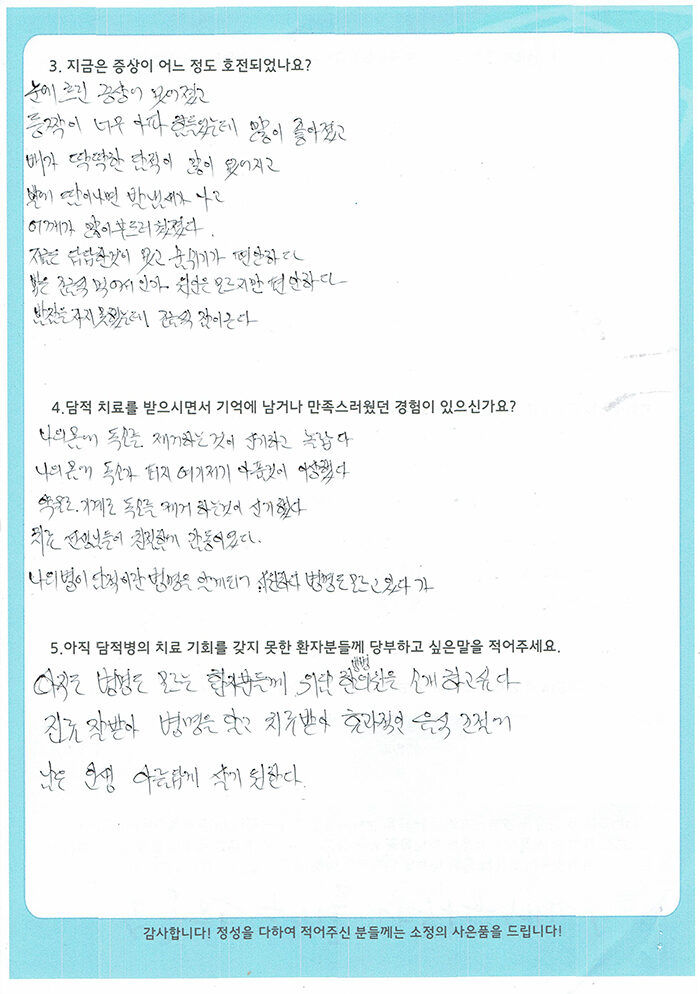 3. 지금은 증상이 어느 정도 호전되었나요?
눈에 흐린 증상이 없어졌고
등짝이 너무 아파 힘들었는데 많이 좋아졌고
배가 딱딱한 담적이 많이 없어지고
발에 땀이나면 발냄새가 나고
어깨가 많이 부드러워졌다.
지금은 답답한것이 없고 숨쉬기가 편안하다
조금씩 먹어서 인가. 원인은 모르지만 편안하다
밤잠을 자지 못했는데 조금씩 잠이온다
4.담적 치료를 받으시면서 기억에 남거나 만족스러웠던 경험이 있으신가요?
나의몸에 독소를 제거하는것이 신기하고 놀랍다
나의몸에 독소가 퍼져 여기저기 아픈것이 이상했다
약물로. 기계로 독소를 제거 하는것이 신기했다
치료 선생님들이 친절함에 감동이었다.
나의병이 담적이란 병명을 알게되어 병명도 모르고 있다가
5.아직 담적병의 치료 기회를 갖지 못한 환자분들께 당부하고 싶은말을 적어주세요.
아직도 병명도 모르는 환자분들께 위담 한방병원을 소개 하고싶다
진료 잘받아 병명을 알고 치료받아 효과적인 음식 조절에
남은 인생 아름답게 살기 원한다.
감사합니다! 정성을 다하여 적어주신 분들께는 소정의 사은품을 드립니다!